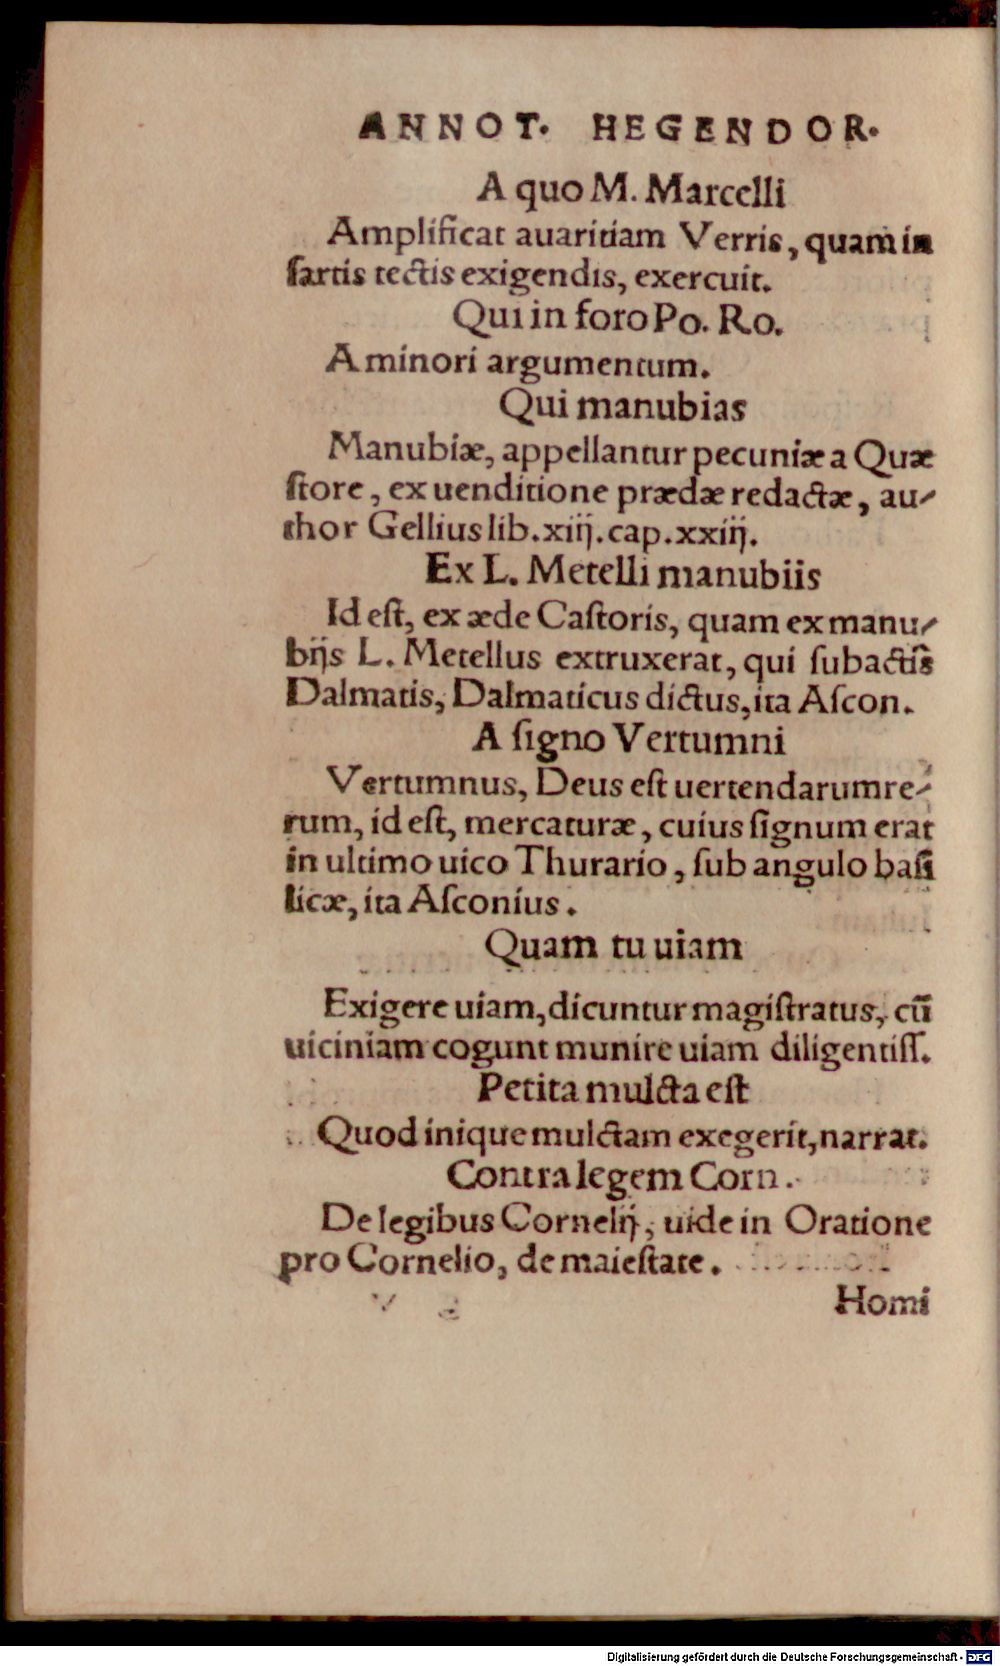 ANNOT. HEGENDOR.
A quo M. Marcelli
Amplificat auaritiam Verris, quam in
ſartis tectis exigendis, exercuit.
Qui in foro Po. Ro.
A minori argumentum.
Qui manubias
Manubiæ, appellantur pecuniæ a Quæ
ſtore, ex uenditione prædæ redactæ, au-
thor Gellius lib.xiij.cap.xxiij.
Ex L. Metelli manubiis
Id eſt, ex æde Caſtoris, quam ex manu-
bijs L. Metellus extruxerat, qui ſubactis
Dalmatis, Dalmaticus dictus, ita Aſcon.
A ſigno Vertumni
Vertumnus, Deus eſt uertendarum re-
rum, id eſt, mercaturæ, cuius ſignum erat
in ultimo uico Thurario, ſub angulo baſi
licæ, ita Aſconius.
Quam tu uiam
Exigere uiam, dicuntur magiſtratus, cũ
uiciniam cogunt munire uiam diligentiſſ.
Petita mulcta eſt
Quod inique mulctam exegerit, narrat.
Contra legem Corn.
De legibus Cornelij, uide in Oratione
pro Cornelio, de maieſtate.
Homi
Digitalisierung gefördert durch die Deutsche Forschungsgemeinschaft - DFG